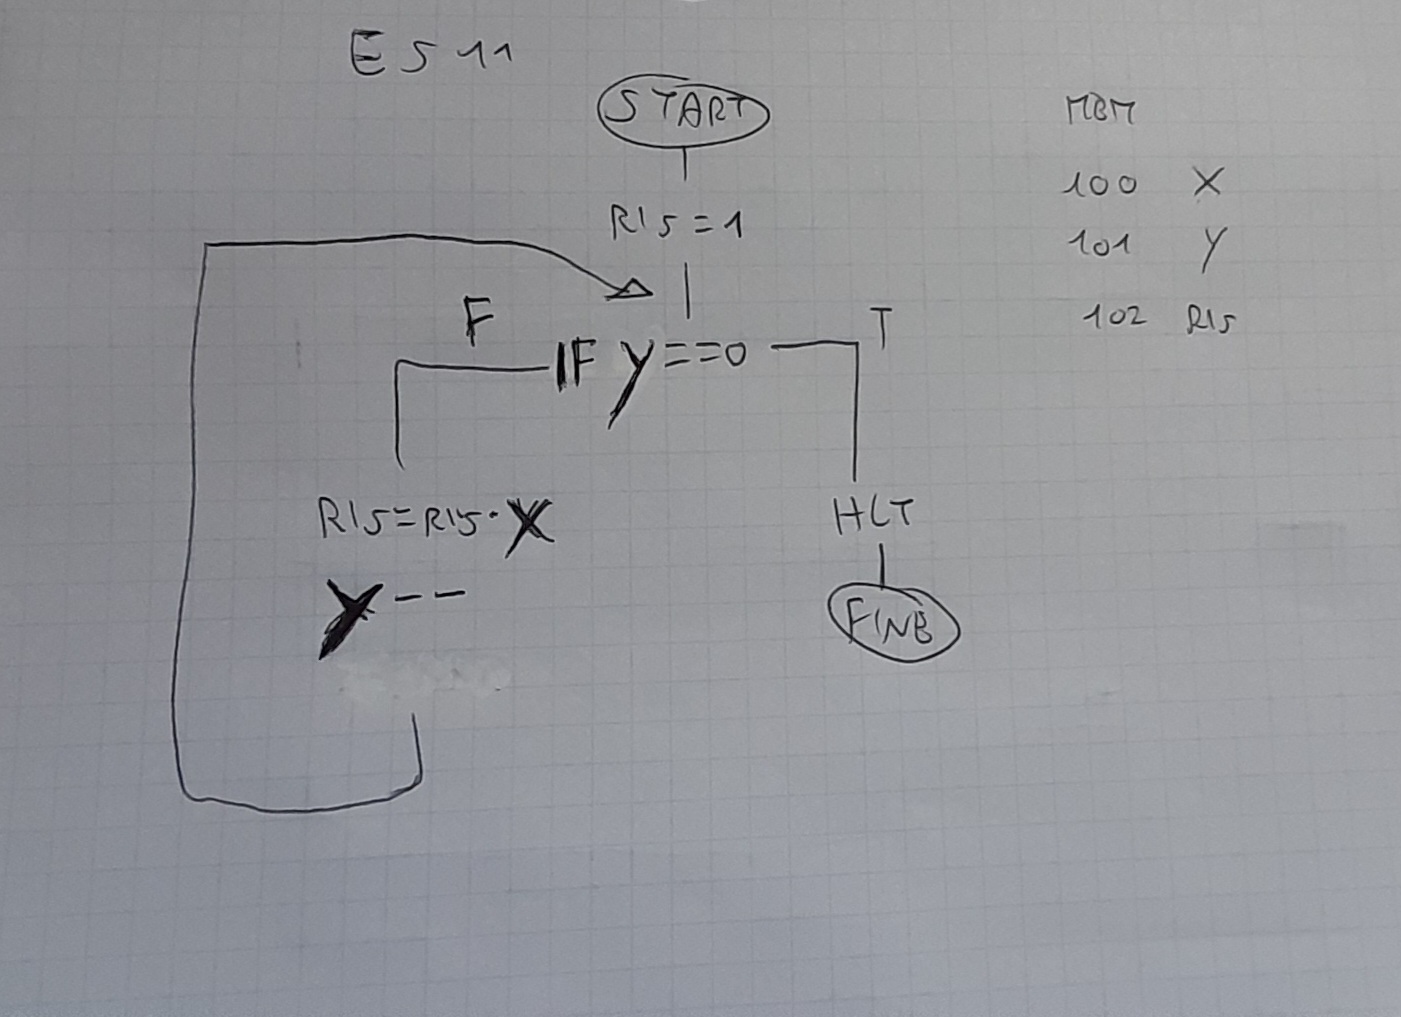 ES 11
START
RIS=1
F
IF Y==0
T
RIS=RIS·X
HLT
Y--
FINE
MEM
100 X
101 Y
102 RIS